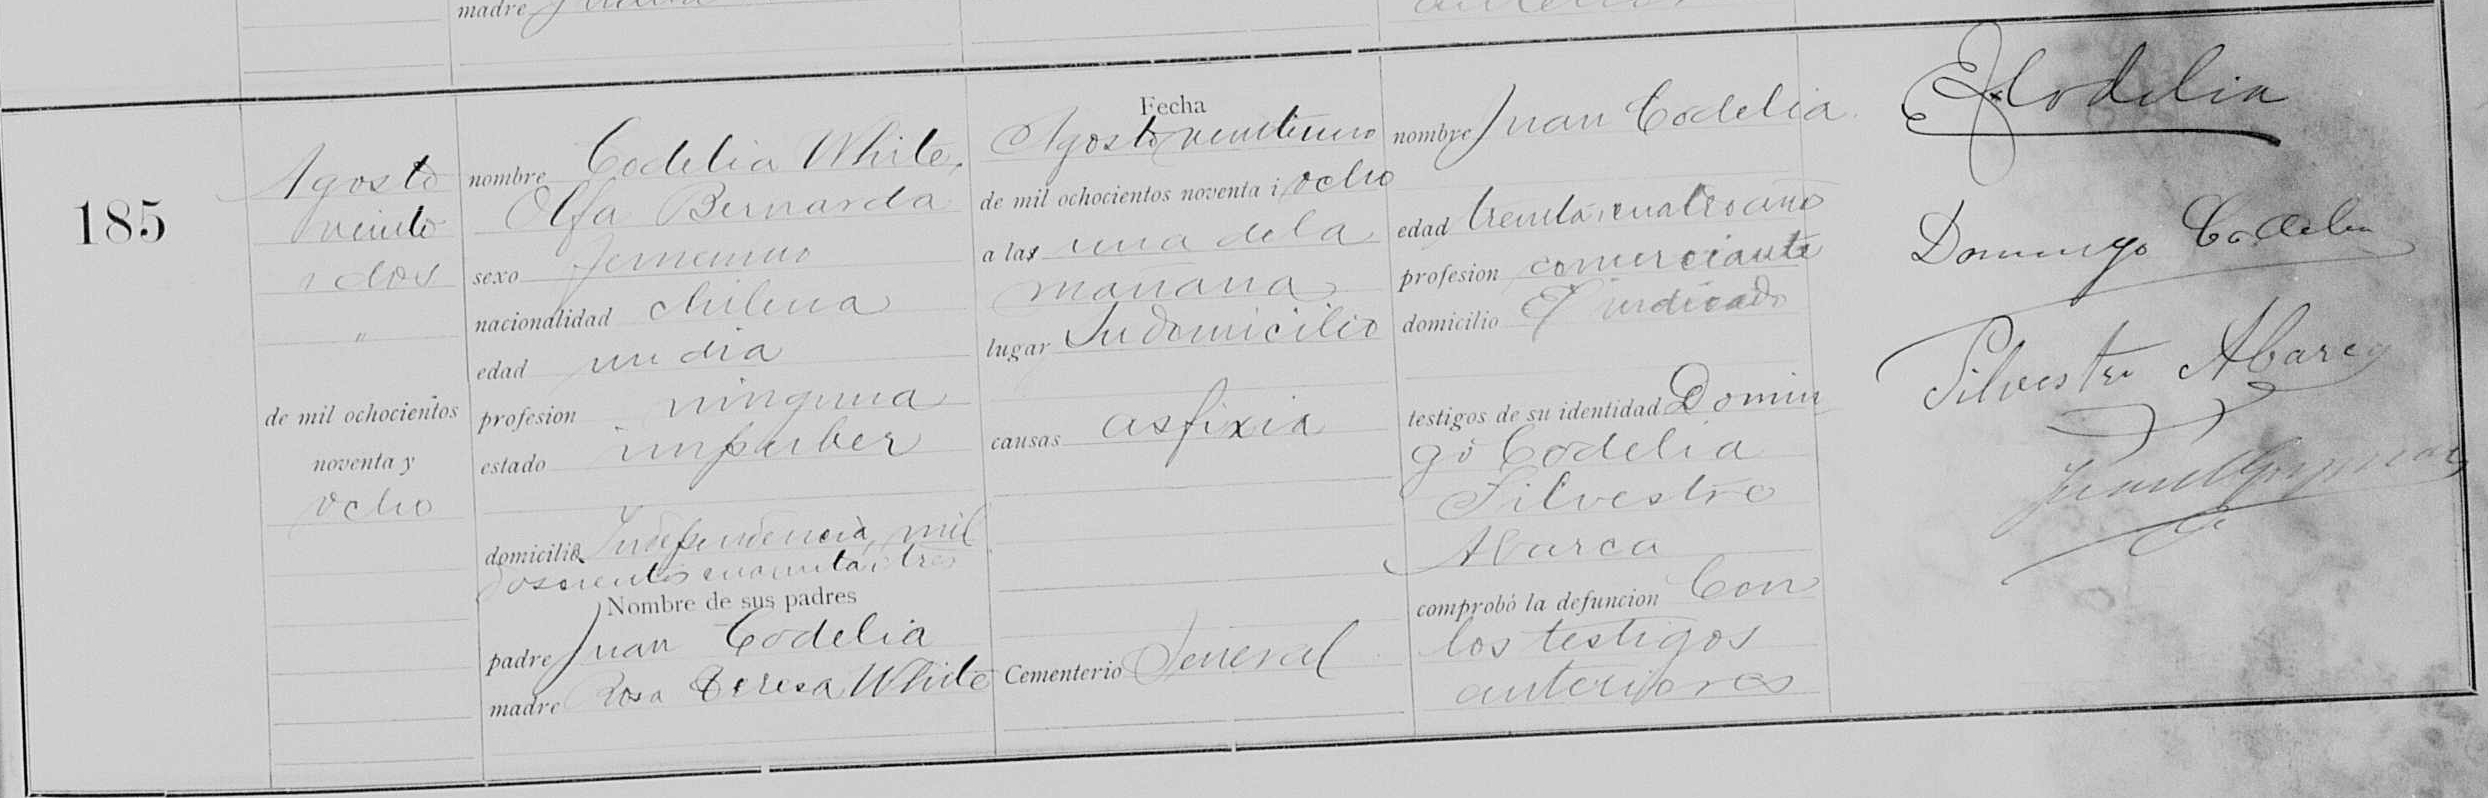 madre
185
Agosto
veinte
i dos
"
de mil ochocientos
noventa y
ocho
nombre Codelia White,
Olfa Bernarda
sexo femenino
nacionalidad chilena
edad un dia
profesion ninguna
estado impuber
domicilio Independencia, mil
doscientos cuarenta i tres
Nombre de sus padres
padre Juan Codelia
madre Rosa Teresa White
Fecha
Agosto veintiuno
de mil ochocientos noventa i ocho
a las una de la
mañana
lugar Su domicilio
causas asfixia
Cementerio Jeneral
nombre Juan Codelia
edad treinta i cuatro años
profesion comerciante
domicilio El indicado
testigos de su identidad Domin
go Codelia
Silvestre
Abarca
comprobó la defuncion Con
los testigos
anteriores
Codelia
Domingo Codelia
Silvestre Abarca